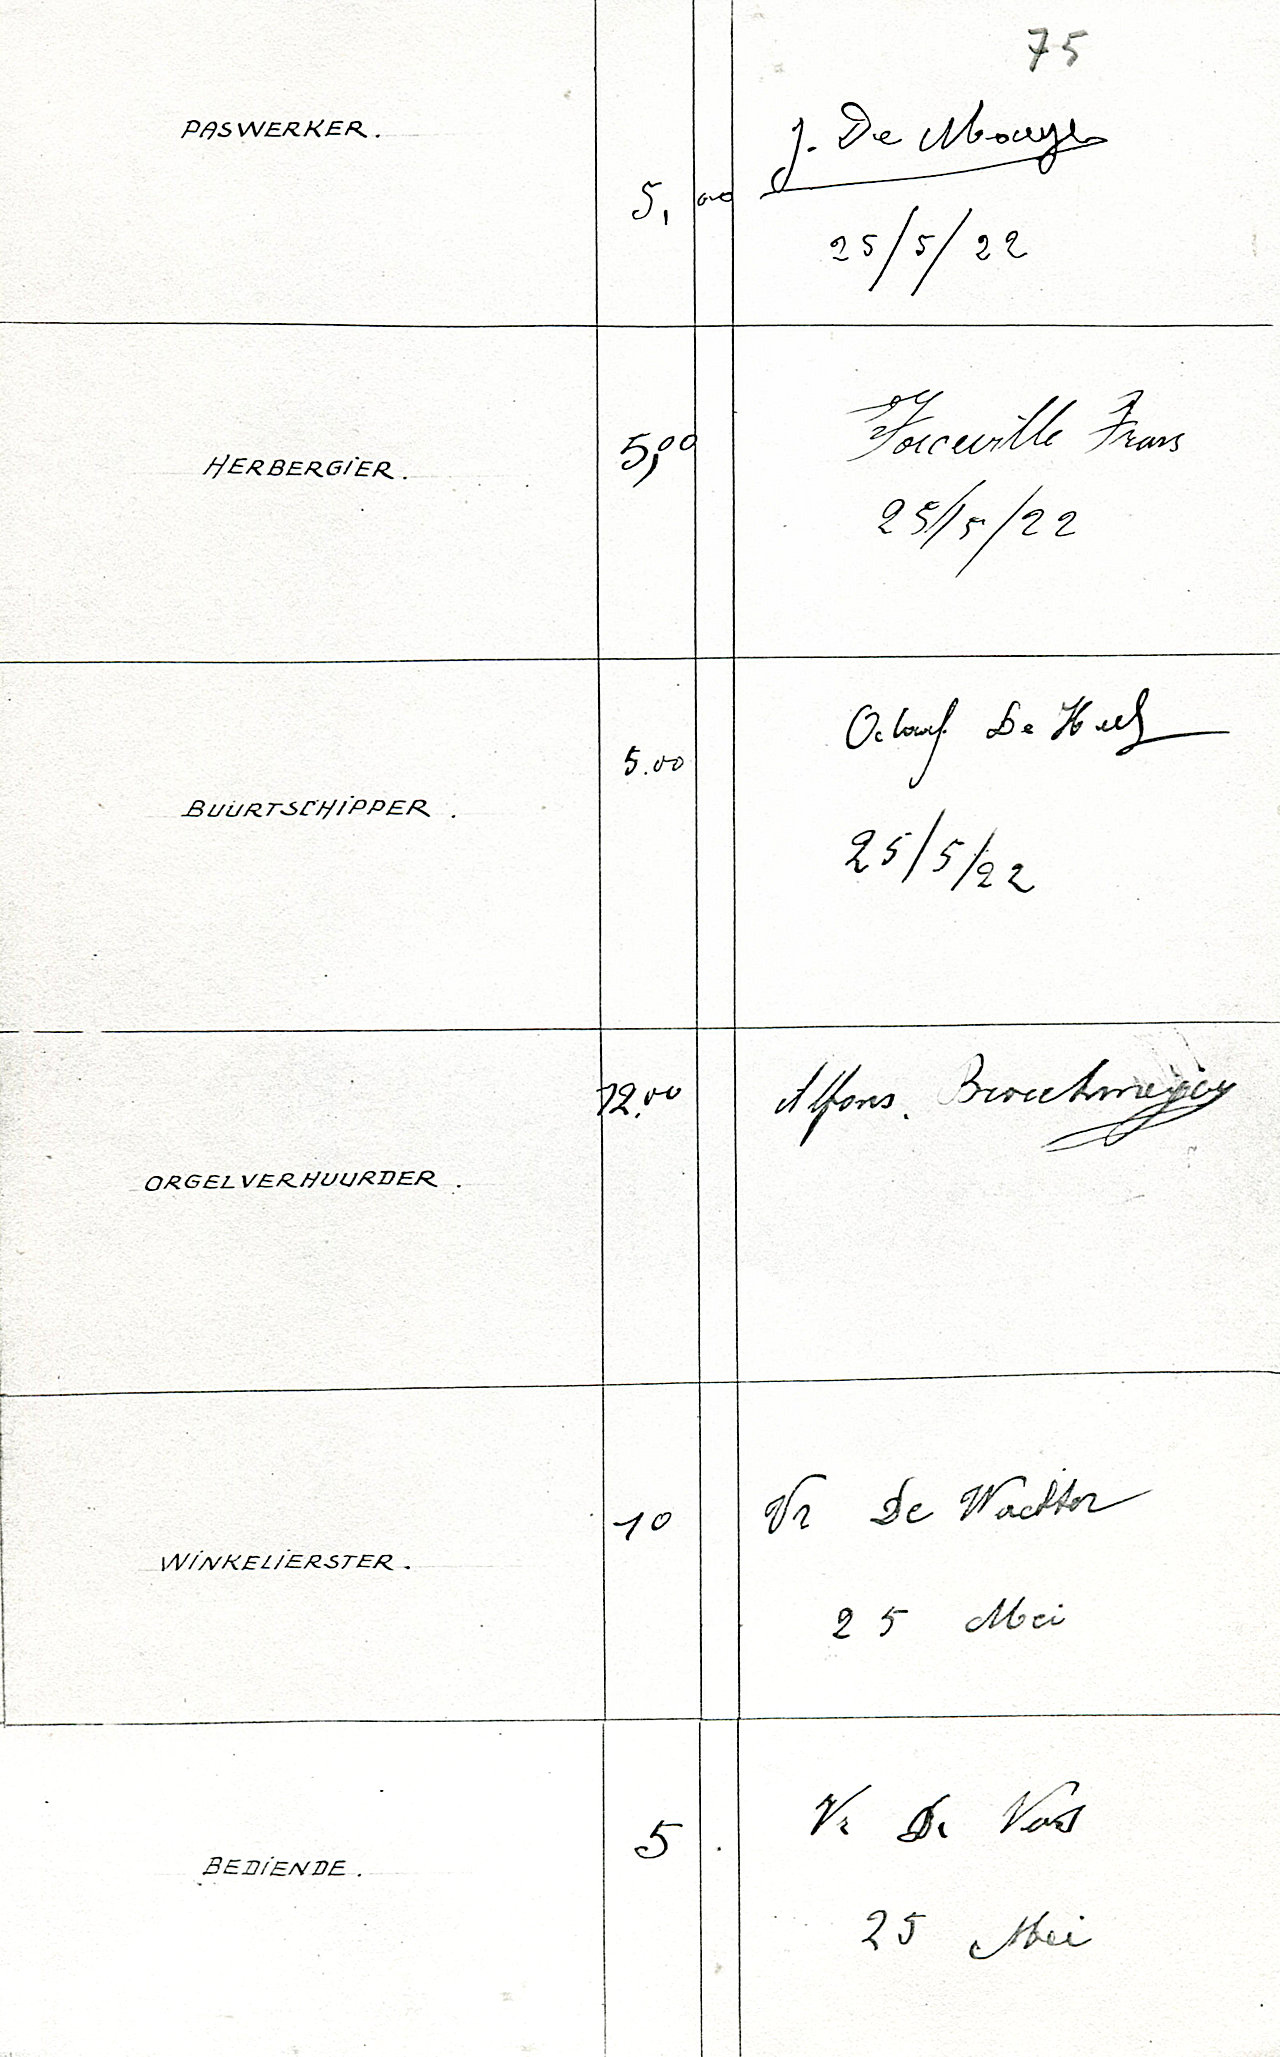 75
PASWERKER.
5,00
J. De
25/5/22
HERBERGIER.
5,00
Frans
25/5/22
BUURTSCHIPPER.
5.00
De
25/5/22
ORGELVERHUURDER.
12.00
Alfons.
WINKELIERSTER.
10
Vr De Wachter
25 Mei
BEDIENDE.
5
Vr De Vos
25 Mei